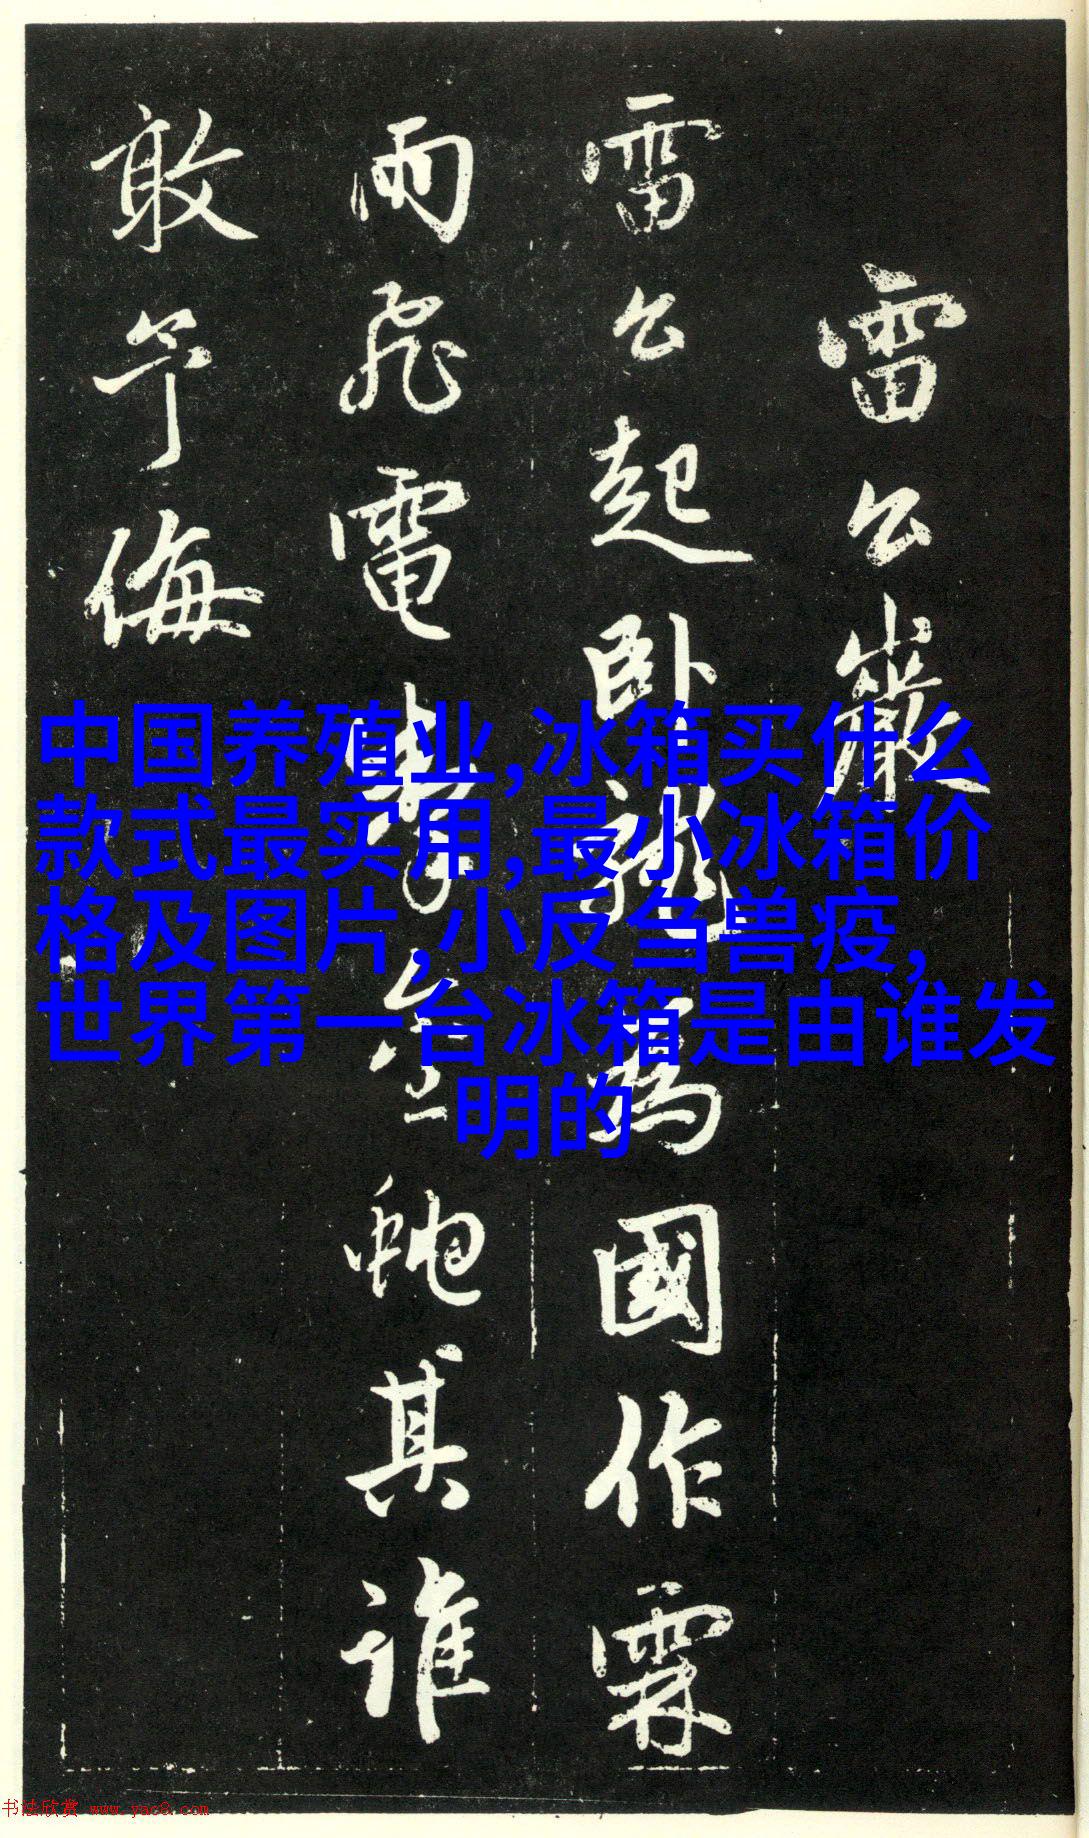 雷公巖
雷公起卧龍為國作霖
雨飛電掣金虵其誰
敢予侮
中国养殖业,冰箱买什么
款式最实用,最小冰箱价
格及图片,小反刍兽疫,
世界第一台冰箱是由谁发
明的
书法欣赏 www.yac8.com